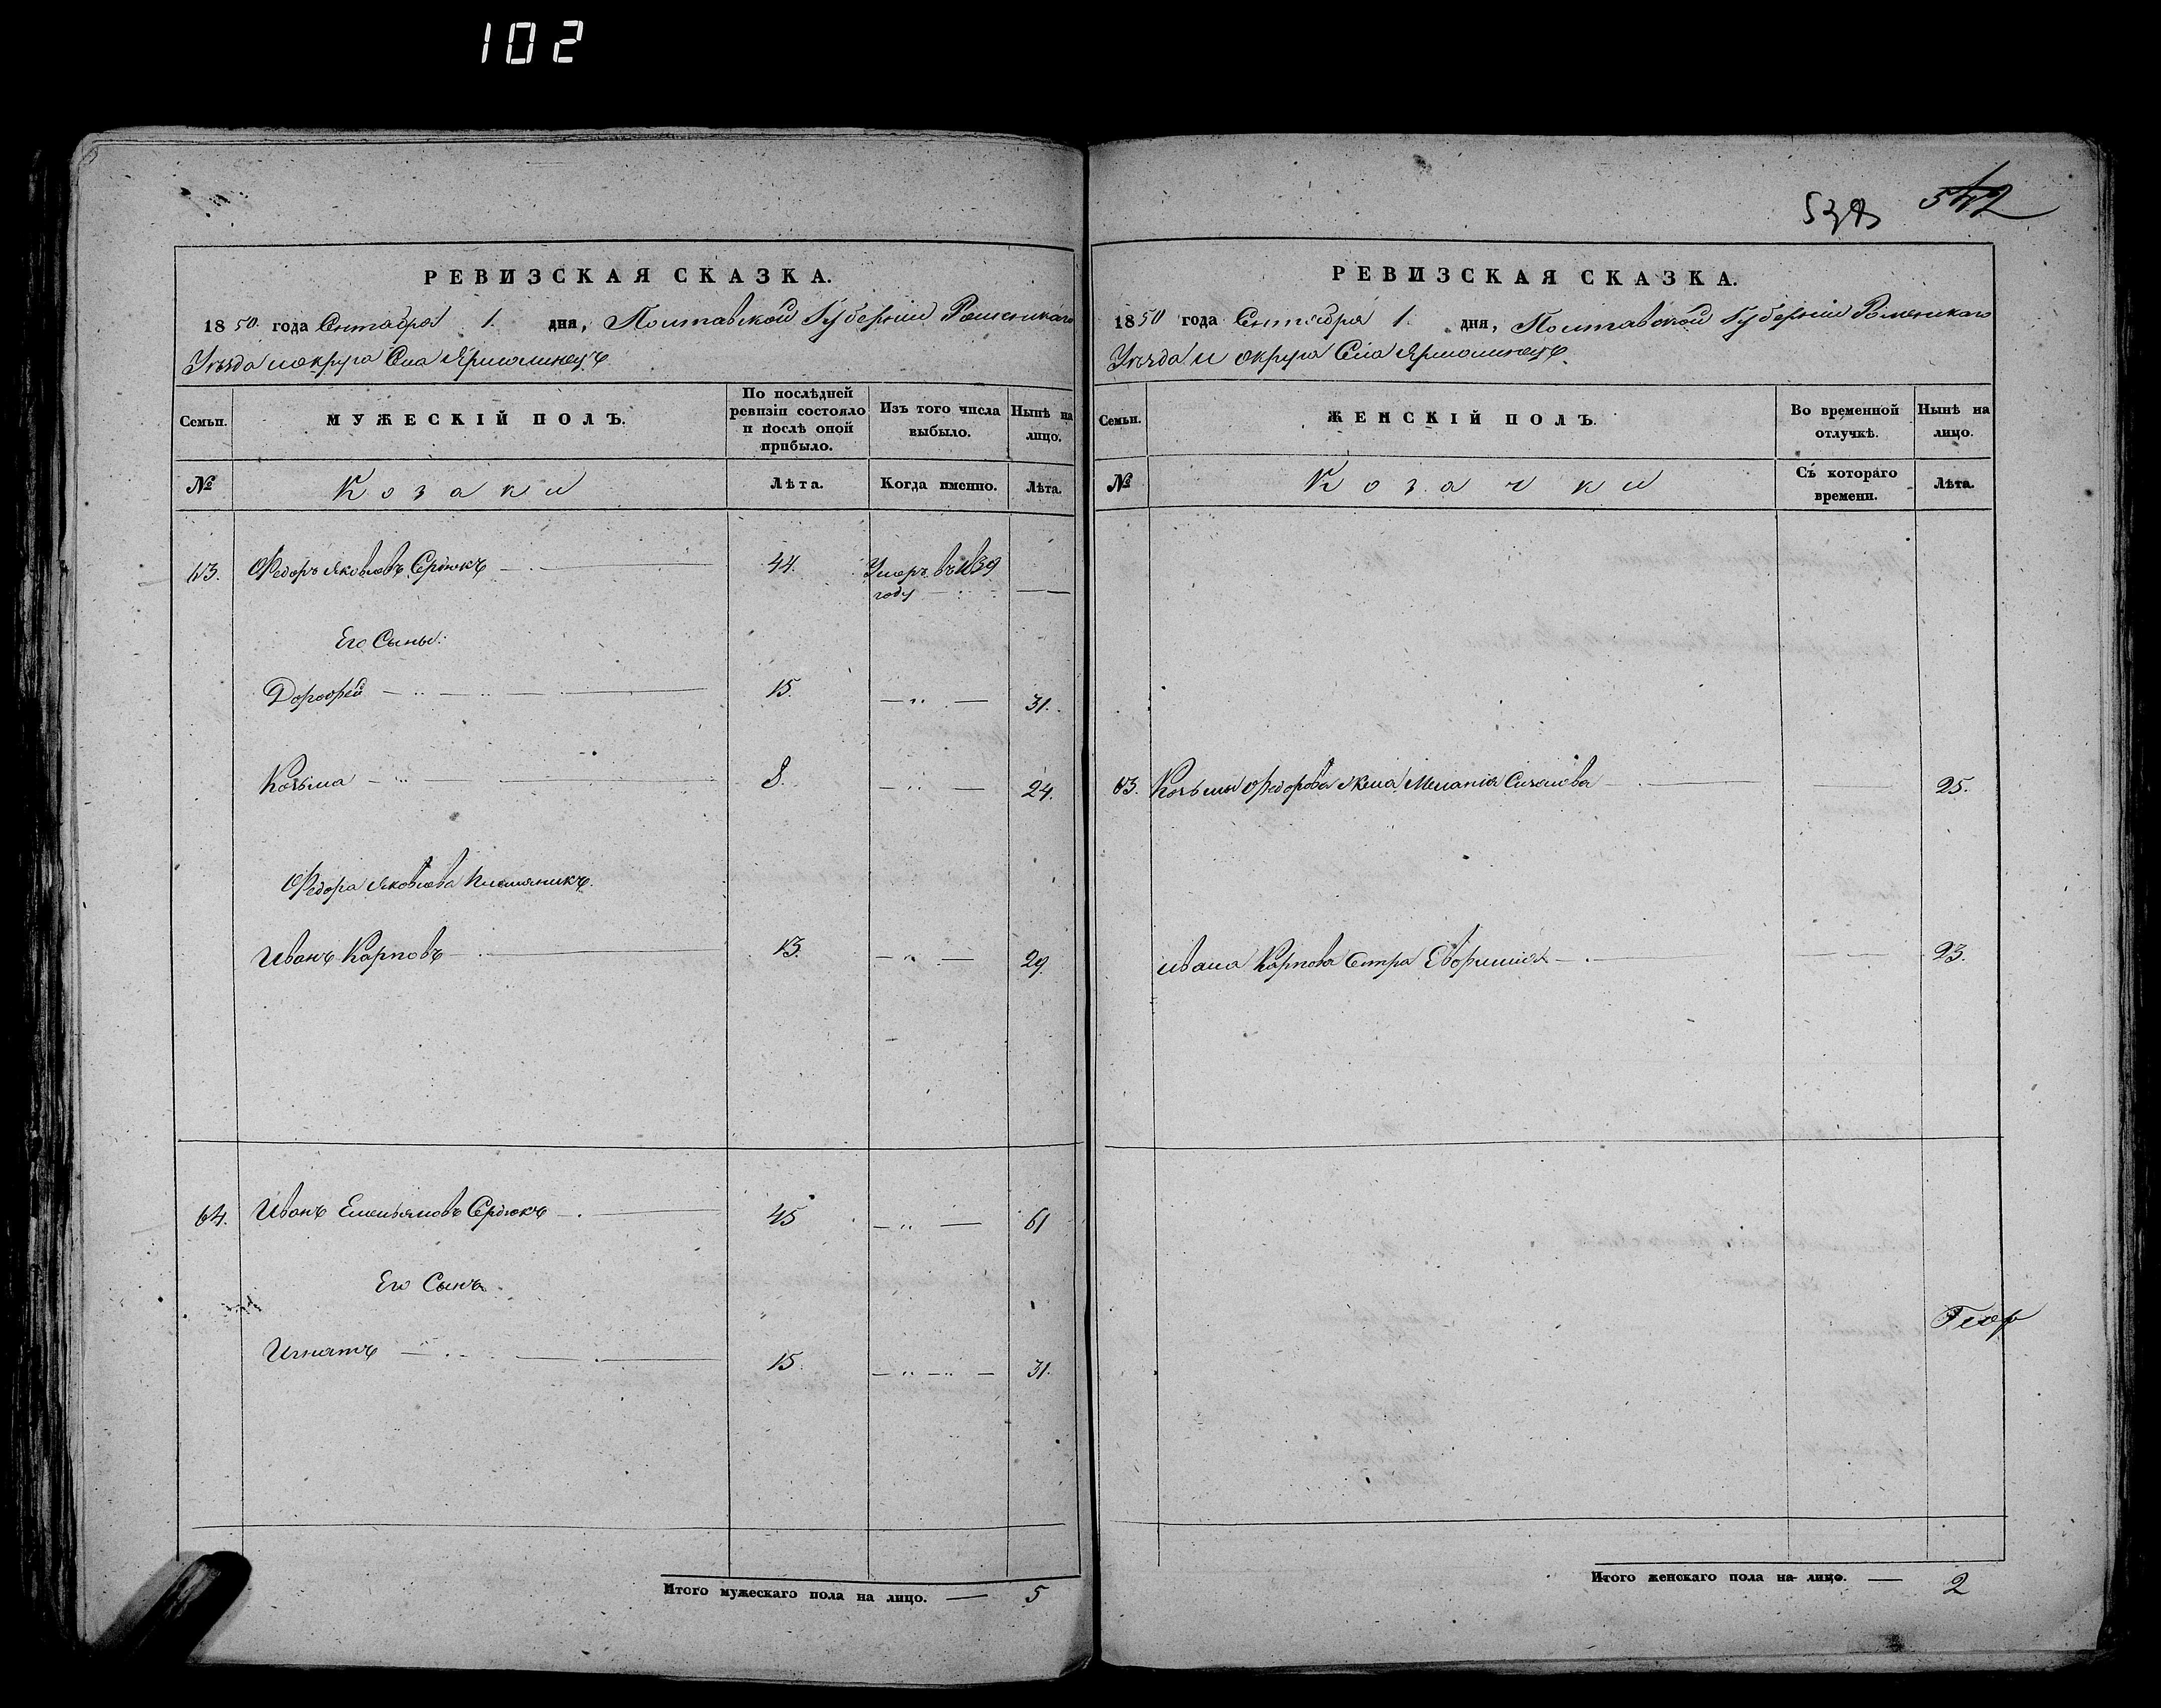 102
542
РЕВИЗСКАЯ СКАЗКА.
1850. года Сентября 1. дня, Полтавской Губерніи Роменскаго
Уѣзда и округа Села Ярмолинецъ
Семьи.
МУЖЕСКІЙ ПОЛЪ.
По послѣдней ревизіи состояло и послѣ оной прибыло.
Изъ того числа выбыло.
Нынѣ на лицо.
№
Козаки
Лѣта.
Когда именно.
Лѣта.
63. Ѳедоръ Яковлевъ Сердюкъ 44. Умеръ въ 1839
году
Его Сыны:
Дорофей 15. 31.
Козьма 8. 24.
Ѳедора Яковлева племяникъ.
Иванъ Карповъ 13. 29.
64. Иванъ Емельяновъ Сердюкъ 45 61
Его Сынъ
Игнатъ 15. 31.
Итого мужескаго пола на лицо. 5
РЕВИЗСКАЯ СКАЗКА.
1850 года Сентября 1. дня, Полтавской Губерніи Роменскаго
Уѣзда и округа Села Ярмолинецъ.
Семьи.
ЖЕНСКІЙ ПОЛЪ.
Во временной отлучкѣ.
Нынѣ на лицо.
№
Козачки
Съ котораго времени.
Лѣта.
63. Козьмы Ѳедорова Жена Меланія 25.
Ивана Карпова Сестра 23.
Итого женскаго пола на лицо. 2